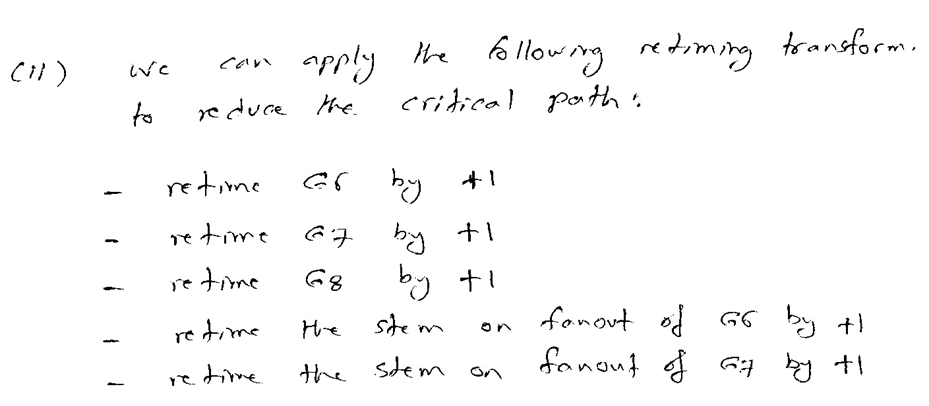 (ii) we can apply the following retiming transform.
to reduce the critical path:
- retime G6 by +1
- retime G7 by +1
- retime G8 by +1
- retime the stem on fanout of G6 by +1
- retime the stem on fanout of G7 by +1